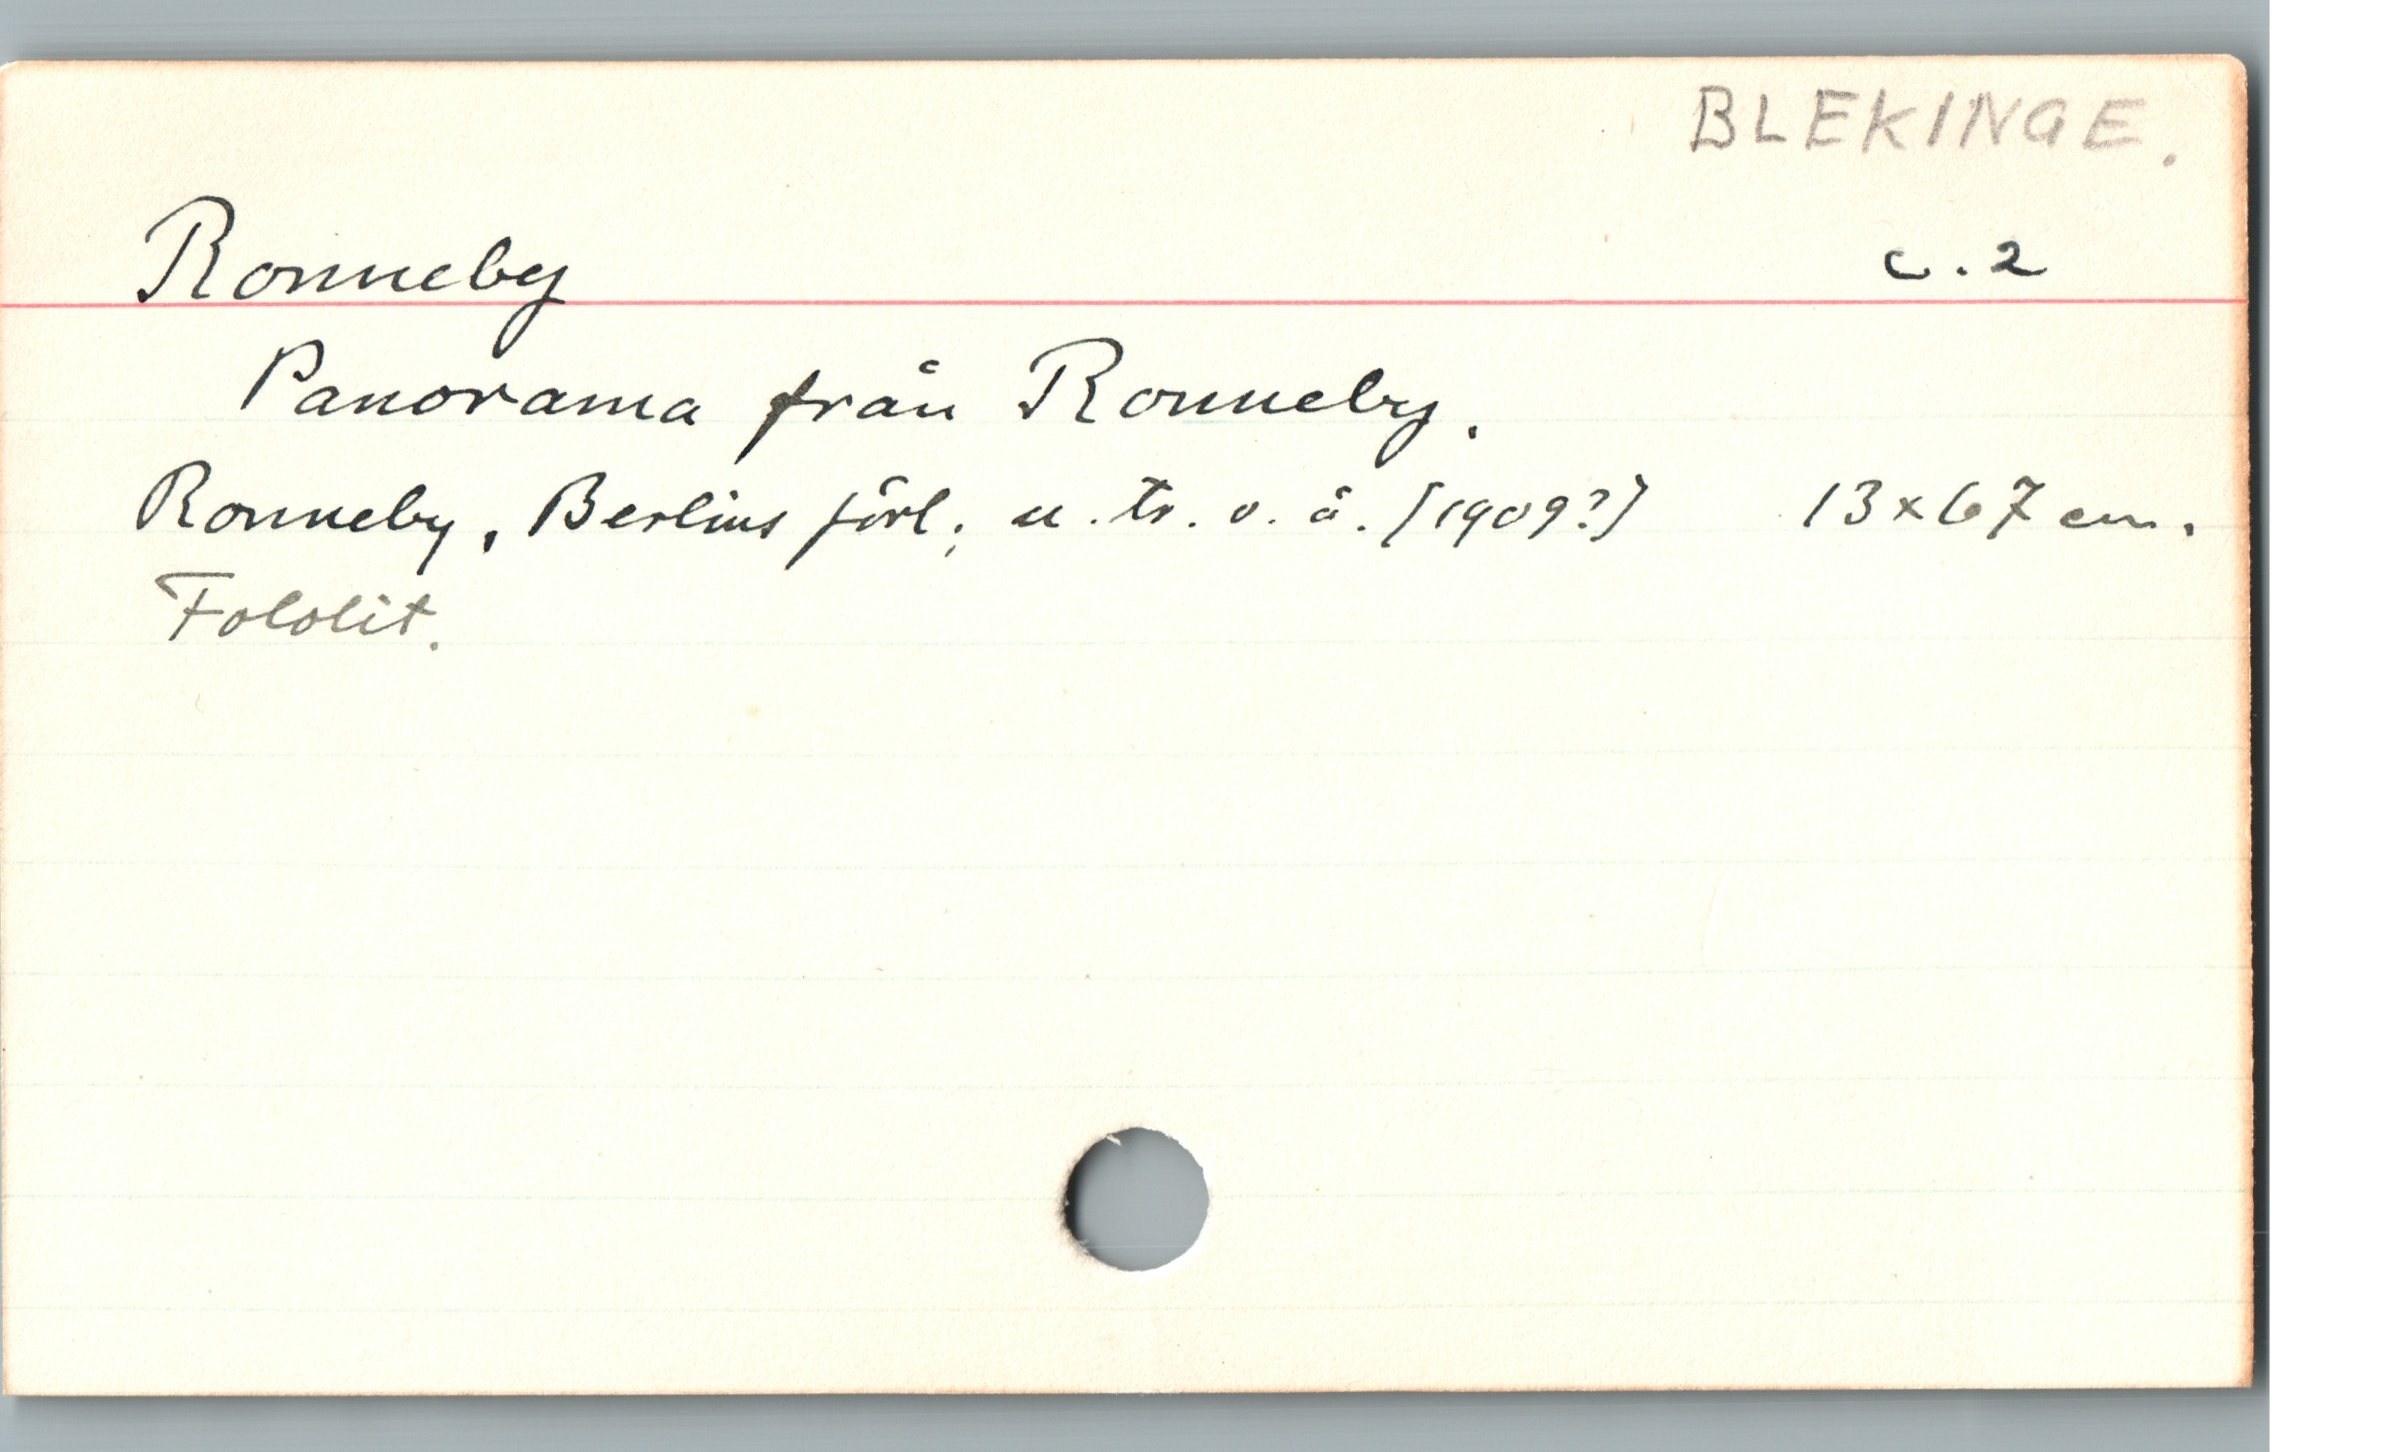 BLEKINGE.
Ronneby c.2
Panorama från Ronneby.
Ronneby, Berlins förl., u. tr. o. å. [1909?] 13x67 cm.
Fotolit.